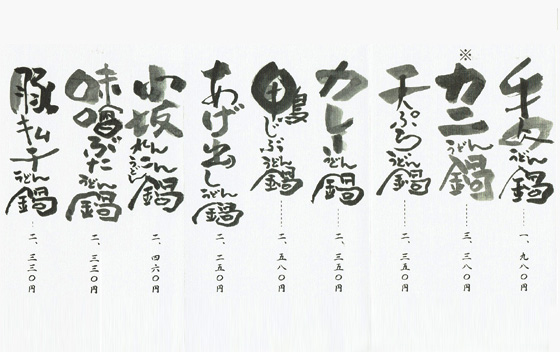 手もみうどん鍋……一、九八〇円
※カニうどん鍋……三、三八〇円
天ぷらうどん鍋……二、三五〇円
カレーうどん鍋……二、三五〇円
鴨じぶうどん鍋……二、五八〇円
あげ出しうどん鍋……二、二五〇円
小坂れんこんうどん鍋……二、四六〇円
味噌ぶたうどん鍋……二、三三〇円
豚キムチうどん鍋……二、三三〇円